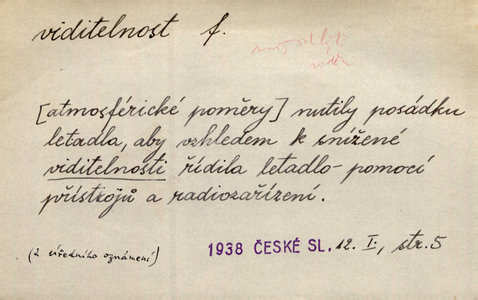 viditelnost f.
[atmosférické poměry] nutily posádku
letadla, aby vzhledem k snížené
viditelnosti řídila letadlo pomocí
přístrojů a radiozařízení.
(z úředního oznámení)
1938 ČESKÉ SL. 12. I., str. 5